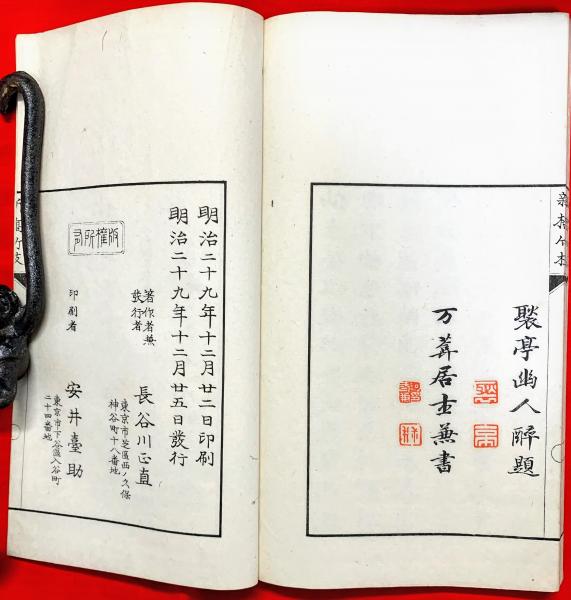 聚亭幽人辞題
万葊居士兼書
明治二十九年十二月廿二日印刷
明治二十九年十二月廿五日發行
版權所有
著作者兼
發行者
長谷川正直
東京市芝區西ノ久保
神谷町十八番地
印刷者
安井臺助
東京市下谷區入谷町
二十四番地